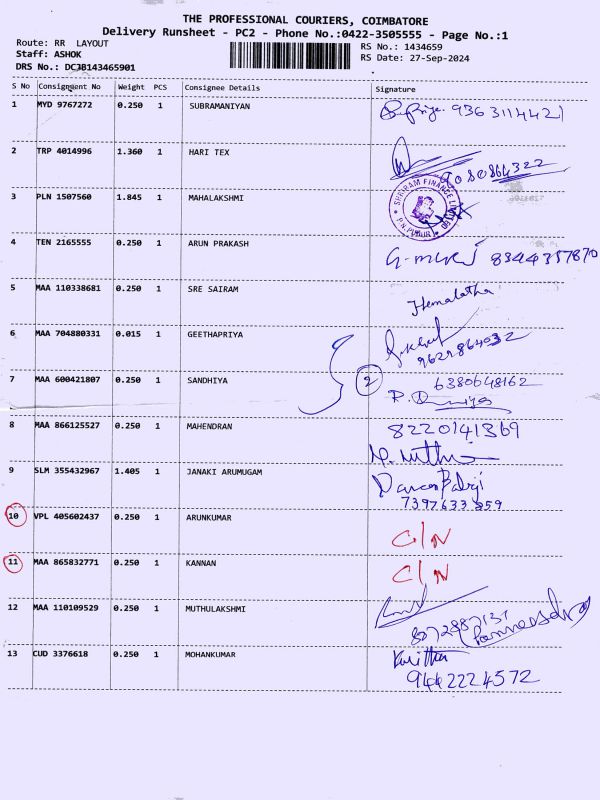 THE PROFESSIONAL COURIERS, COIMBATORE
Delivery Runsheet - PC2 - Phone No.:0422-3505555 - Page No.:1
Route: RR LAYOUT
RS No.: 1434659
Staff: ASHOK
RS Date: 27-Sep-2024
DRS No.: DCJB143465901
S No Consignment No Weight PCS Consignee Details Signature
1 MYD 9767272 0.250 1 SUBRAMANIYAN 9363114421
2 TRP 4014996 1.360 1 HARI TEX
3 PLN 1507560 1.845 1 MAHALAKSHMI
SHRIRAM FINANCE
4 TEN 2165555 0.250 1 ARUN PRAKASH 8344357870
5 MAA 110338681 0.250 1 SRE SAIRAM Hemalatha
6 MAA 704880331 0.015 1 GEETHAPRIYA
7 MAA 600421807 0.250 1 SANDHIYA 2 6380648162
8 MAA 866125527 0.250 1 MAHENDRAN 8220141369
9 SLM 355432967 1.405 1 JANAKI ARUMUGAM
10 VPL 405602437 0.250 1 ARUNKUMAR C/N
11 MAA 865832771 0.250 1 KANNAN C/N
12 MAA 110109529 0.250 1 MUTHULAKSHMI
13 CUD 3376618 0.250 1 MOHANKUMAR
9442224572